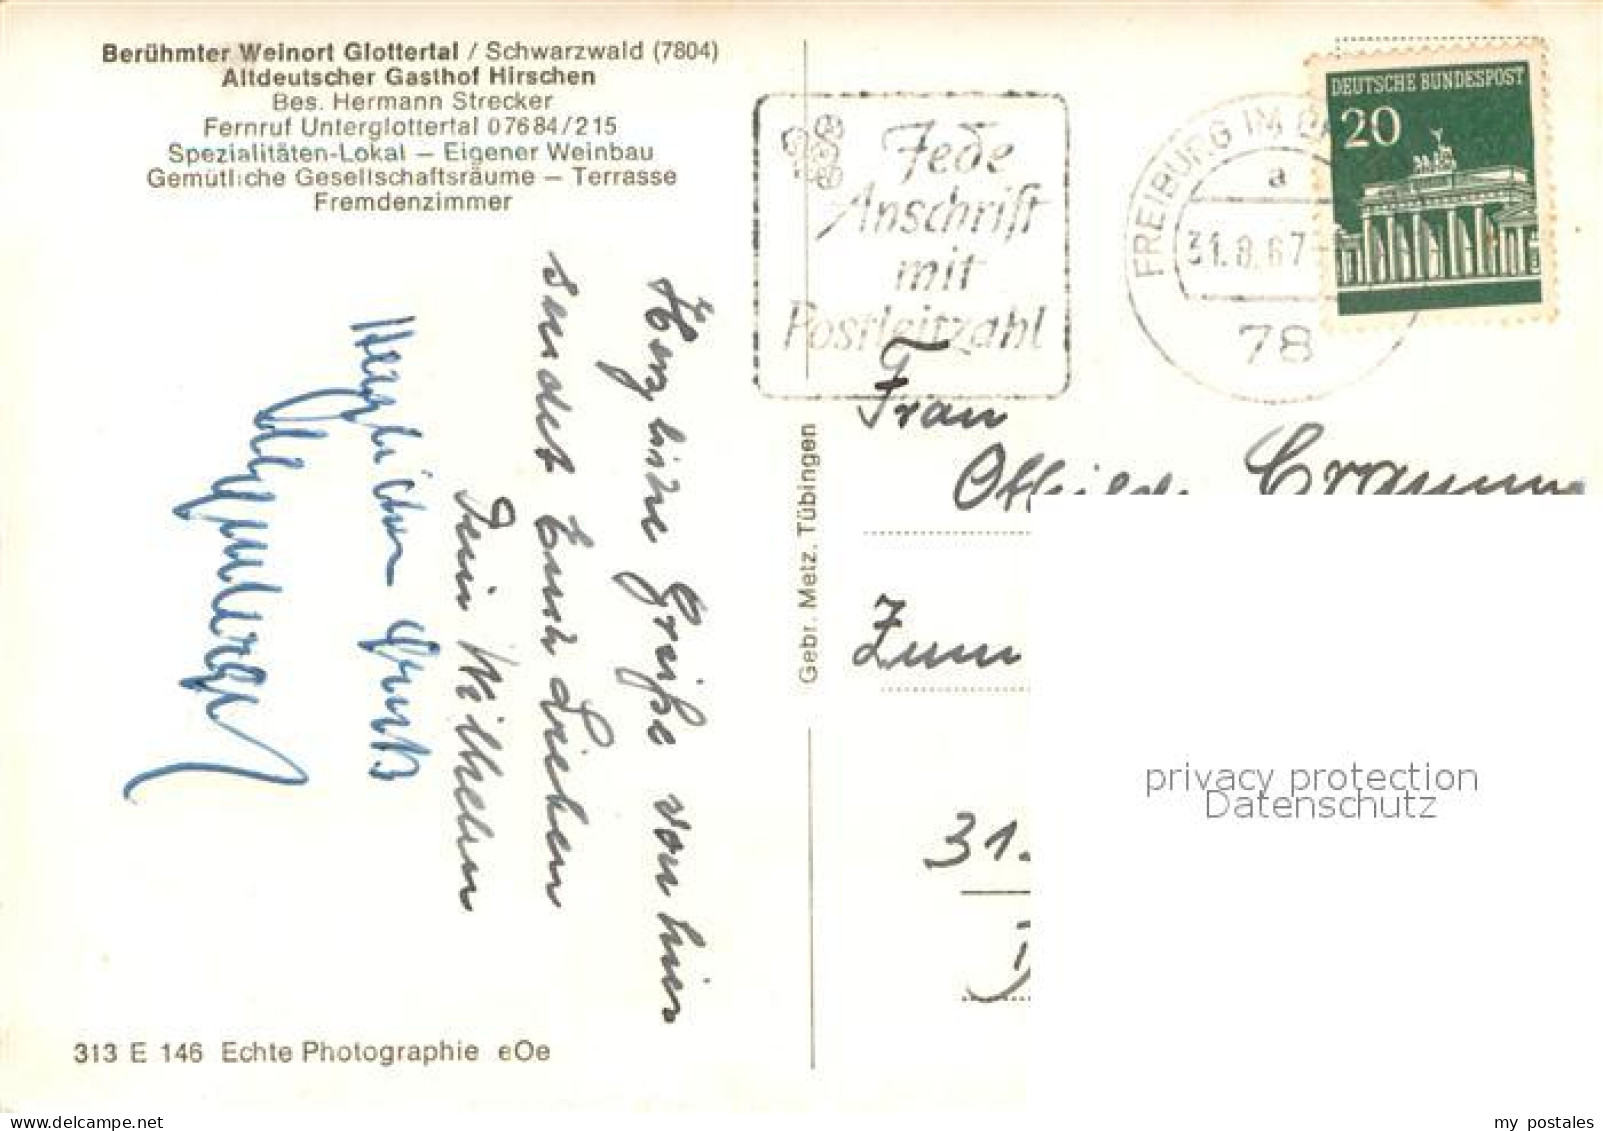 Berühmter Weinort Glottertal / Schwarzwald (7804)
Altdeutscher Gasthof Hirschen
Bes. Hermann Strecker
Fernruf Unterglottertal 07684/215
Spezialitäten-Lokal — Eigener Weinbau
Gemütliche Gesellschaftsräume — Terrasse
Fremdenzimmer
Herzliche Grüße von hier
sendet Euch Lieben
Dein Wilhelm
Herzlichen Gruß
313 E 146 Echte Photographie
Gebr. Metz, Tübingen
Jede
Anschrift
mit
Postleitzahl
FREIBURG IM
a
31.8.67
78
DEUTSCHE BUNDESPOST
20
Frau
Zum
31.
privacy protection
Datenschutz
www.delcampe.net
my_postales